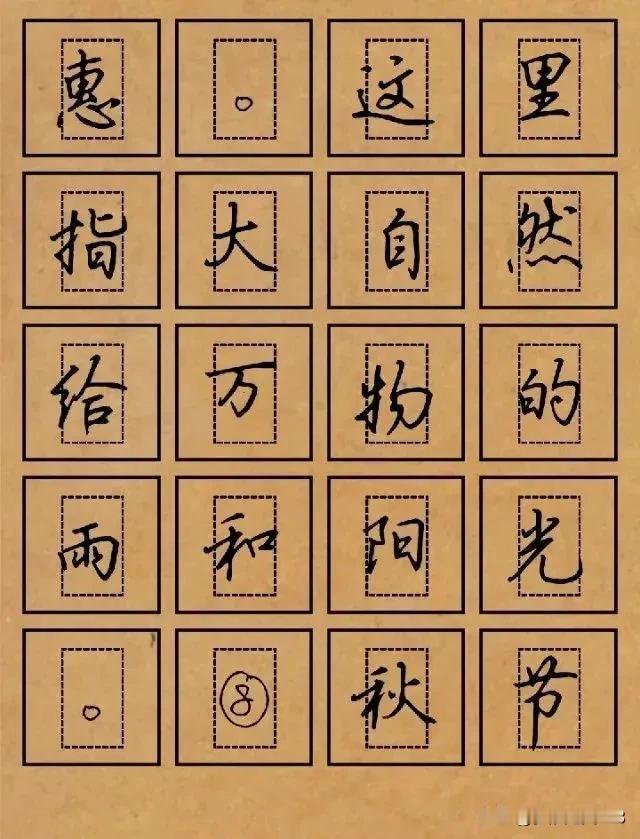 惠。这里
指大自然
给万物的
雨和阳光
。⑧秋节